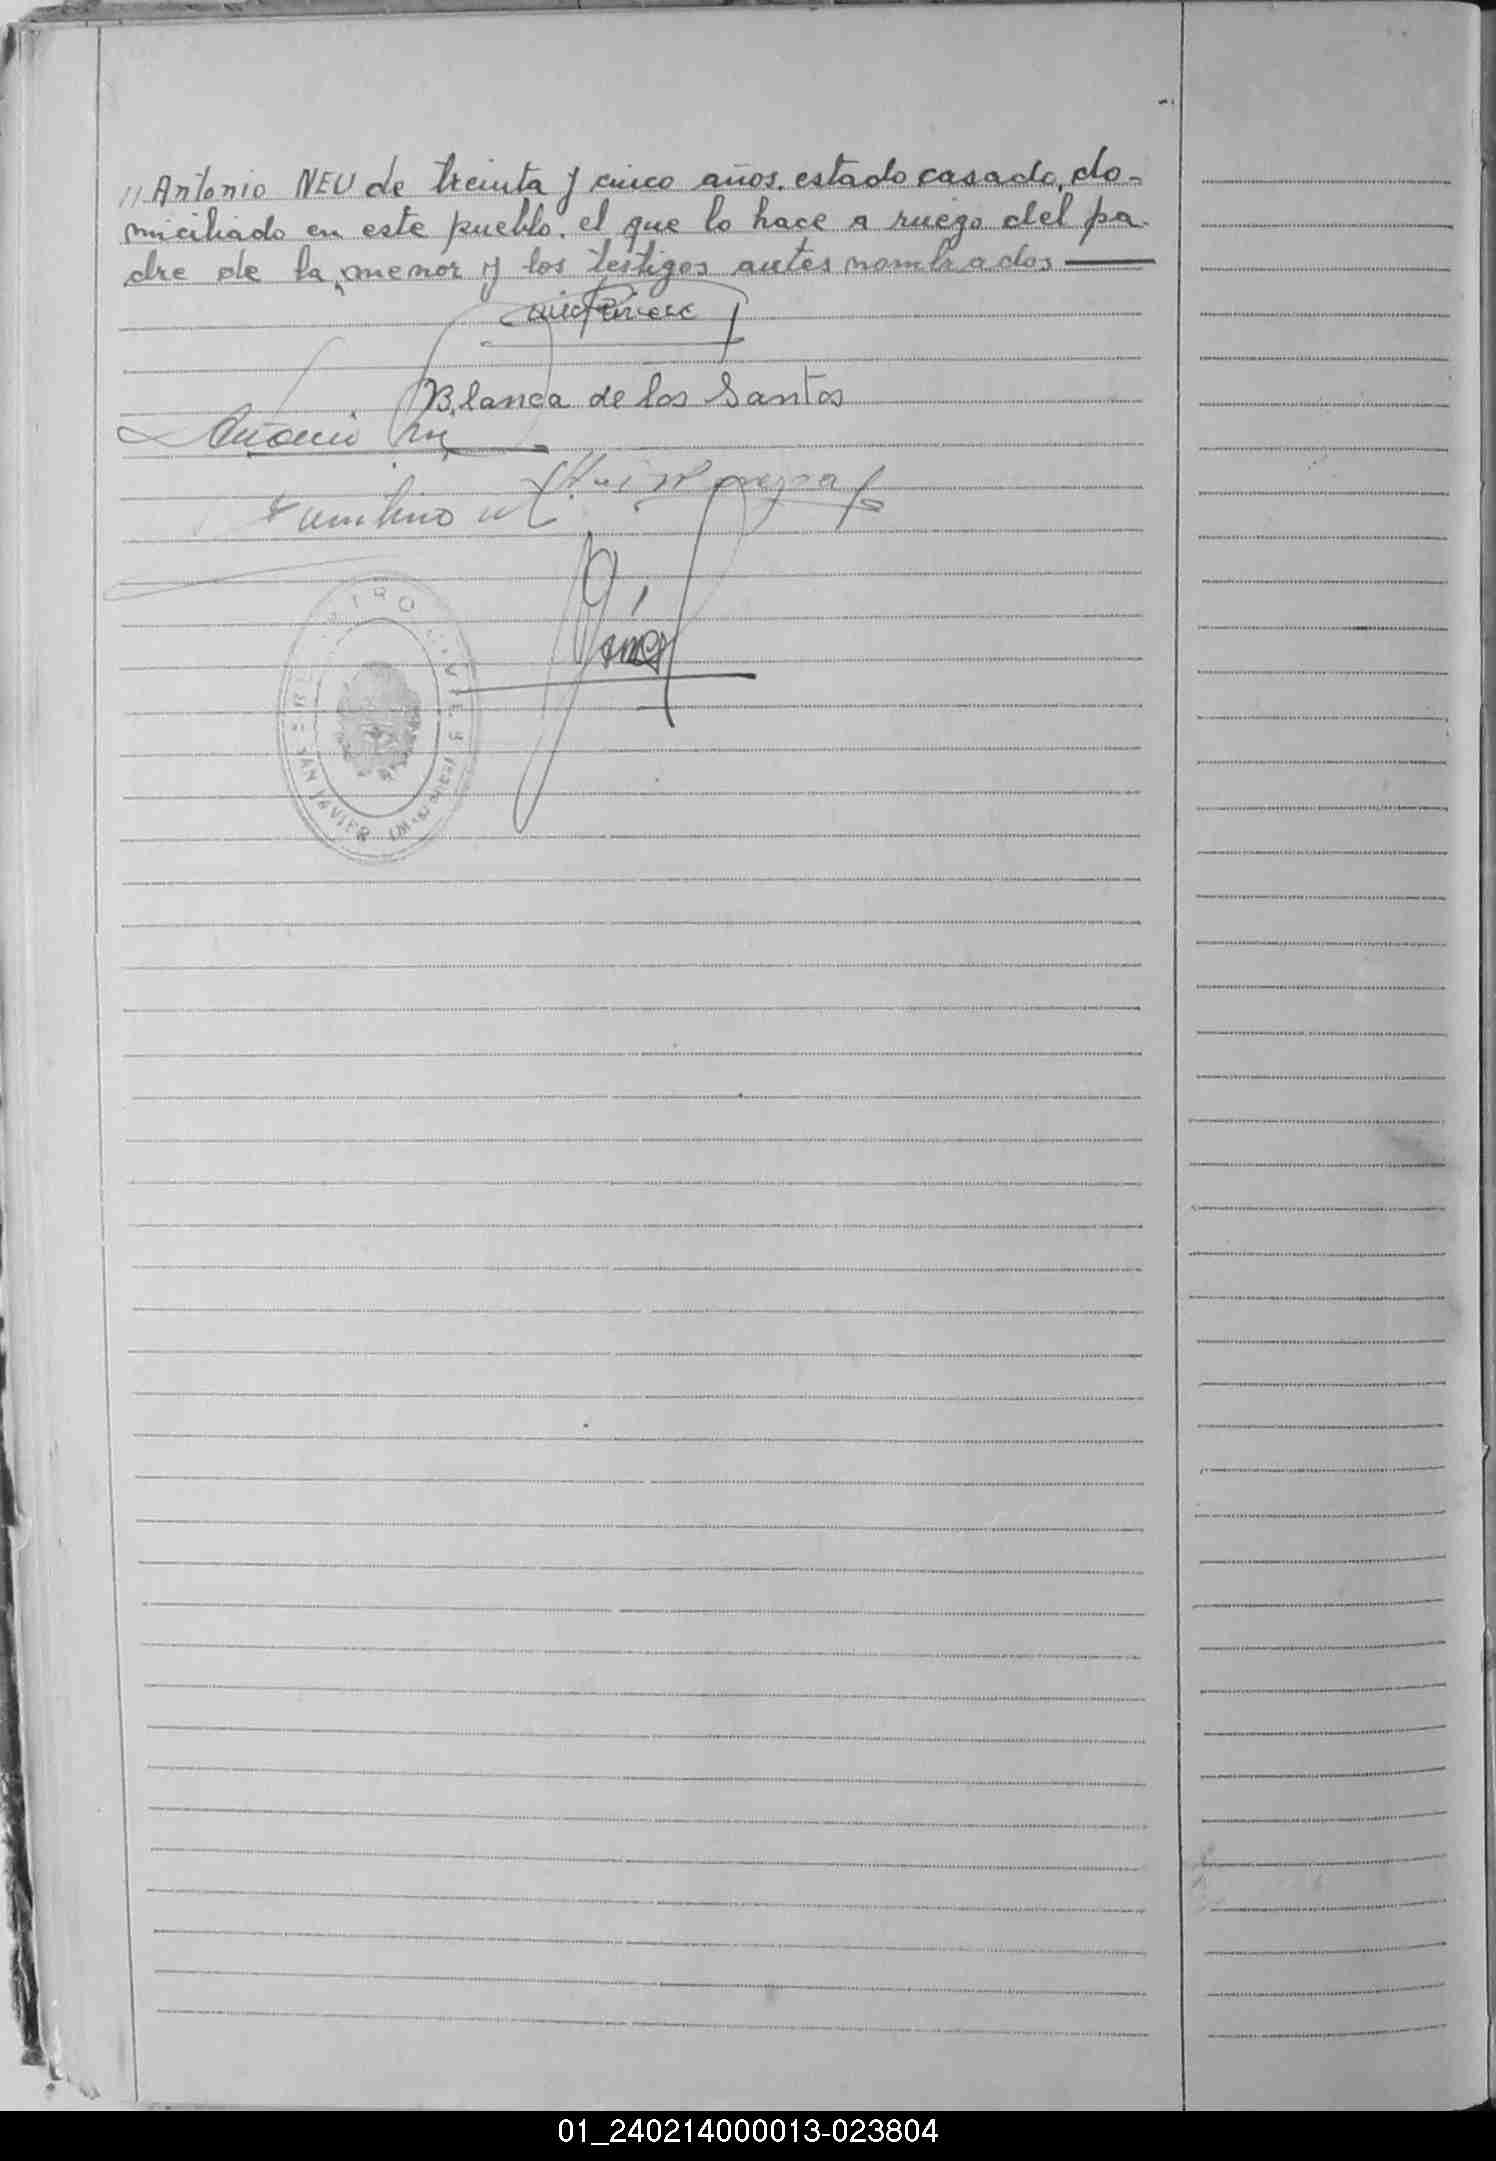 // Antonio NEU de treinta y cinco años, estado casado, do-
miciliado en este pueblo, el que lo hace a ruego del pa-
dre de la menor y los testigos antes nombrados
Blanca de los Santos
Antonio Neu
REGISTRO CIVIL
SAN JAVIER (Misiones)
01_240214000013-023804